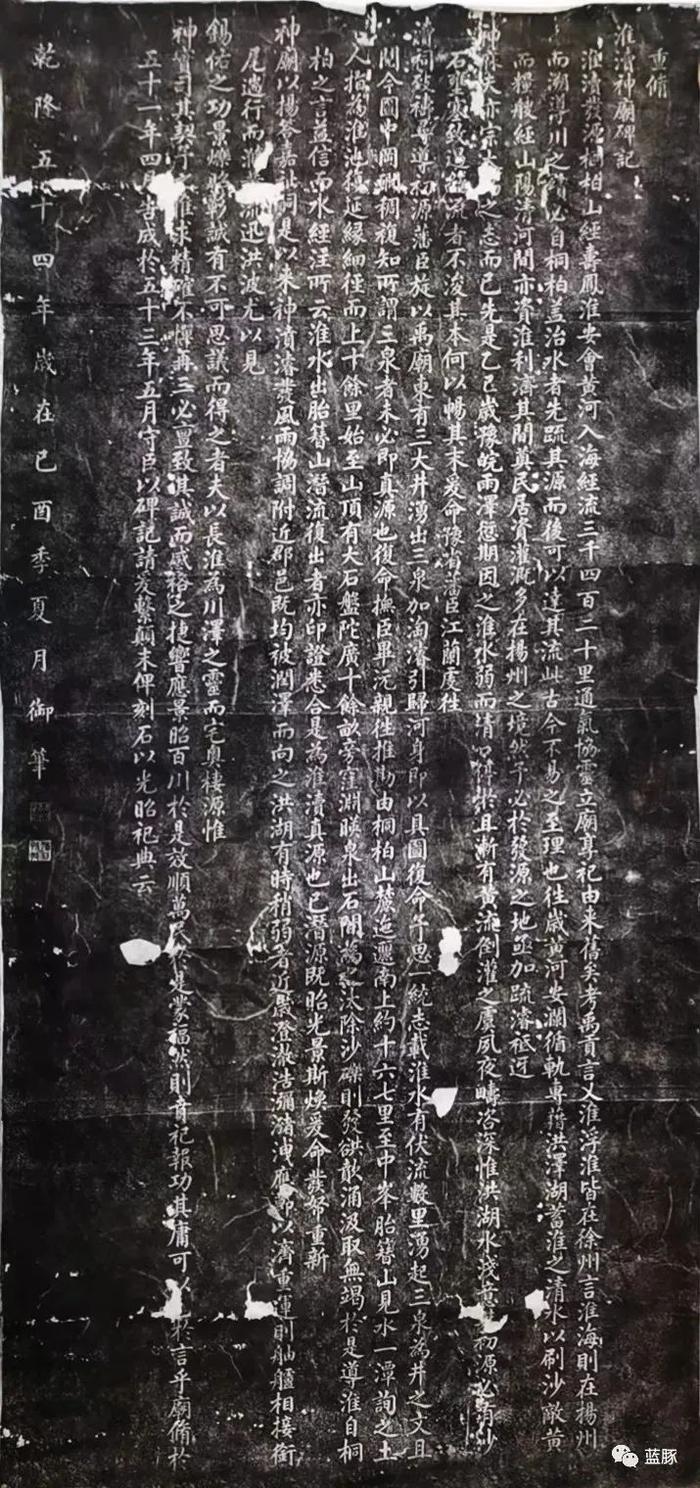 重脩
淮瀆神廟碑記
淮瀆發源桐柏山經壽鳳淮安會黃河入海經流三千四百二十里通氣協靈立廟享祀由来舊矣考禹貢言乂淮浮淮皆在徐州言淮海則在揚州
而溯導川之績必自桐柏盖治水者先疏其源而後可以達其流此古今不易之至理也徃歲黃河安瀾循軌專藉洪澤湖蓄淮之清水以刷沙敵黃
而糧艘經山陽清河間亦資淮利濟其間奠民居資灌溉多在揚州之境然予必於發源之地亟加疏濬祗近
神庥夫亦宗之志而已先是乙巳歲豫皖雨澤愆期因之淮水弱而清口淤且漸有黃流倒灌之虞夙夜疇咨深惟洪湖水淺黃初源必有沙
石壅塞致遏節流者不浚其本何以暢其末爰命豫省藩臣江蘭虔徃
瀆祠致禱尋導初源藩臣旋以禹廟東有三大井湧出三泉加淘濬引歸河身即以具圖復命予思一統志載淮水有伏流數里湧起三泉為井之文且
閱今圖中岡磵稠複知所謂三泉者未必即真源也復命撫臣畢沅親徃推勘由桐柏山麓迤邐南上約十六七里至中峯胎簪山見水一潭詢之土
人指為淮池複延縁細徑而上十餘里始至山頂有大石盤陀廣十餘畝旁窪淵暎泉出石閒為之汰除沙礫則發欱歕涌汲取無竭於是導淮自桐
柏之言益信而水經注所云淮水出胎簪山潛流復出者亦印證悉合是為淮瀆真源也已潛源既昭光景斯煥爰命發帑重新
神廟以揚答嘉祉自是以来神瀆濬發風雨協調附近郡邑既均被潤澤而向之洪湖有時稍弱者近嵗登漵浩瀰瀦洩應節以濟重運則舳艫相接銜
尾遄行而淮流迅洪波尤以見
錫佑之功景爍彰誠有不可思議而得之者夫以長淮為川澤之靈而宅奧棲源惟
神實司其契予惟求精確不憚再三必亶致其誠而感格之捷響應景昭百川於是效順萬民於是蒙福然則脊祀報功其庸可以於言乎廟脩於
五十一年四月告成於五十三年五月守臣以碑記請爰繫顛末俾刻石以光昭祀典云
乾隆五十四年歳在己酉季夏月御筆
蓝豚